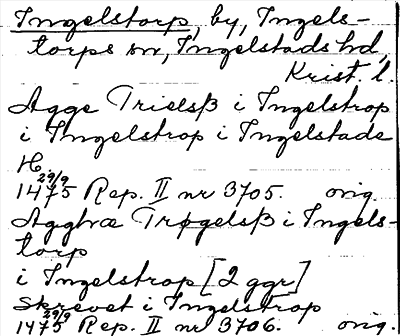 Ingelstorp, by, Ingels-
torps sn, Ingelstads hd,
Krist. l.
Agge Trielsß i Ingelstrop
i Ingelstrop i Ingelstade
H
29/9
1475 Rep. II nr 3705. orig.
Agghræ Trøgelsß i Ingels-
torp
i Ingelstrop [2 ggr]
Skrevet i Ingelstrop
29/9
1475 Rep. II nr 3706. orig.